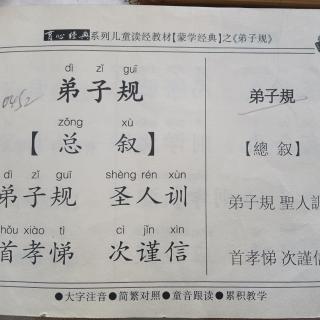 育心经典系列儿童读经教材【蒙学经典】之《弟子规》
dì zǐ guī
弟子规
zǒng xù
【总 叙】
dì zǐ guī shèng rén xùn
弟子规 圣人训
shǒu xiào tì cì jǐn xìn
首孝悌 次謹信
弟子規
【總 叙】
弟子規 聖人訓
首孝悌 次謹信
0452
●大字注音●简繁对照●童音跟读●累积教学